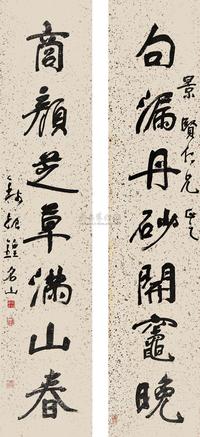 景賢仁兄正之
句漏丹砂開竈晚
商顏芝草滿山春
錢振鍠名山